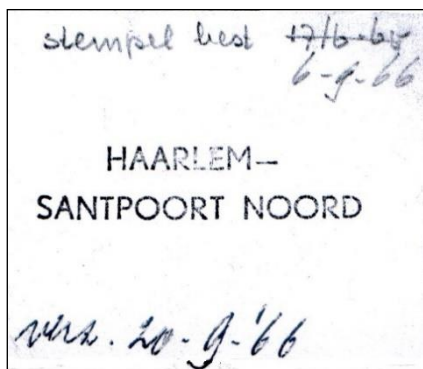 stempel best 17/6-65
6-9-66
HAARLEM—
SANTPOORT NOORD
verz. 20-9-'66